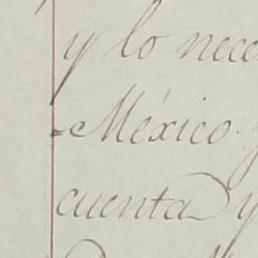 y lo nece
México.
cuenta y